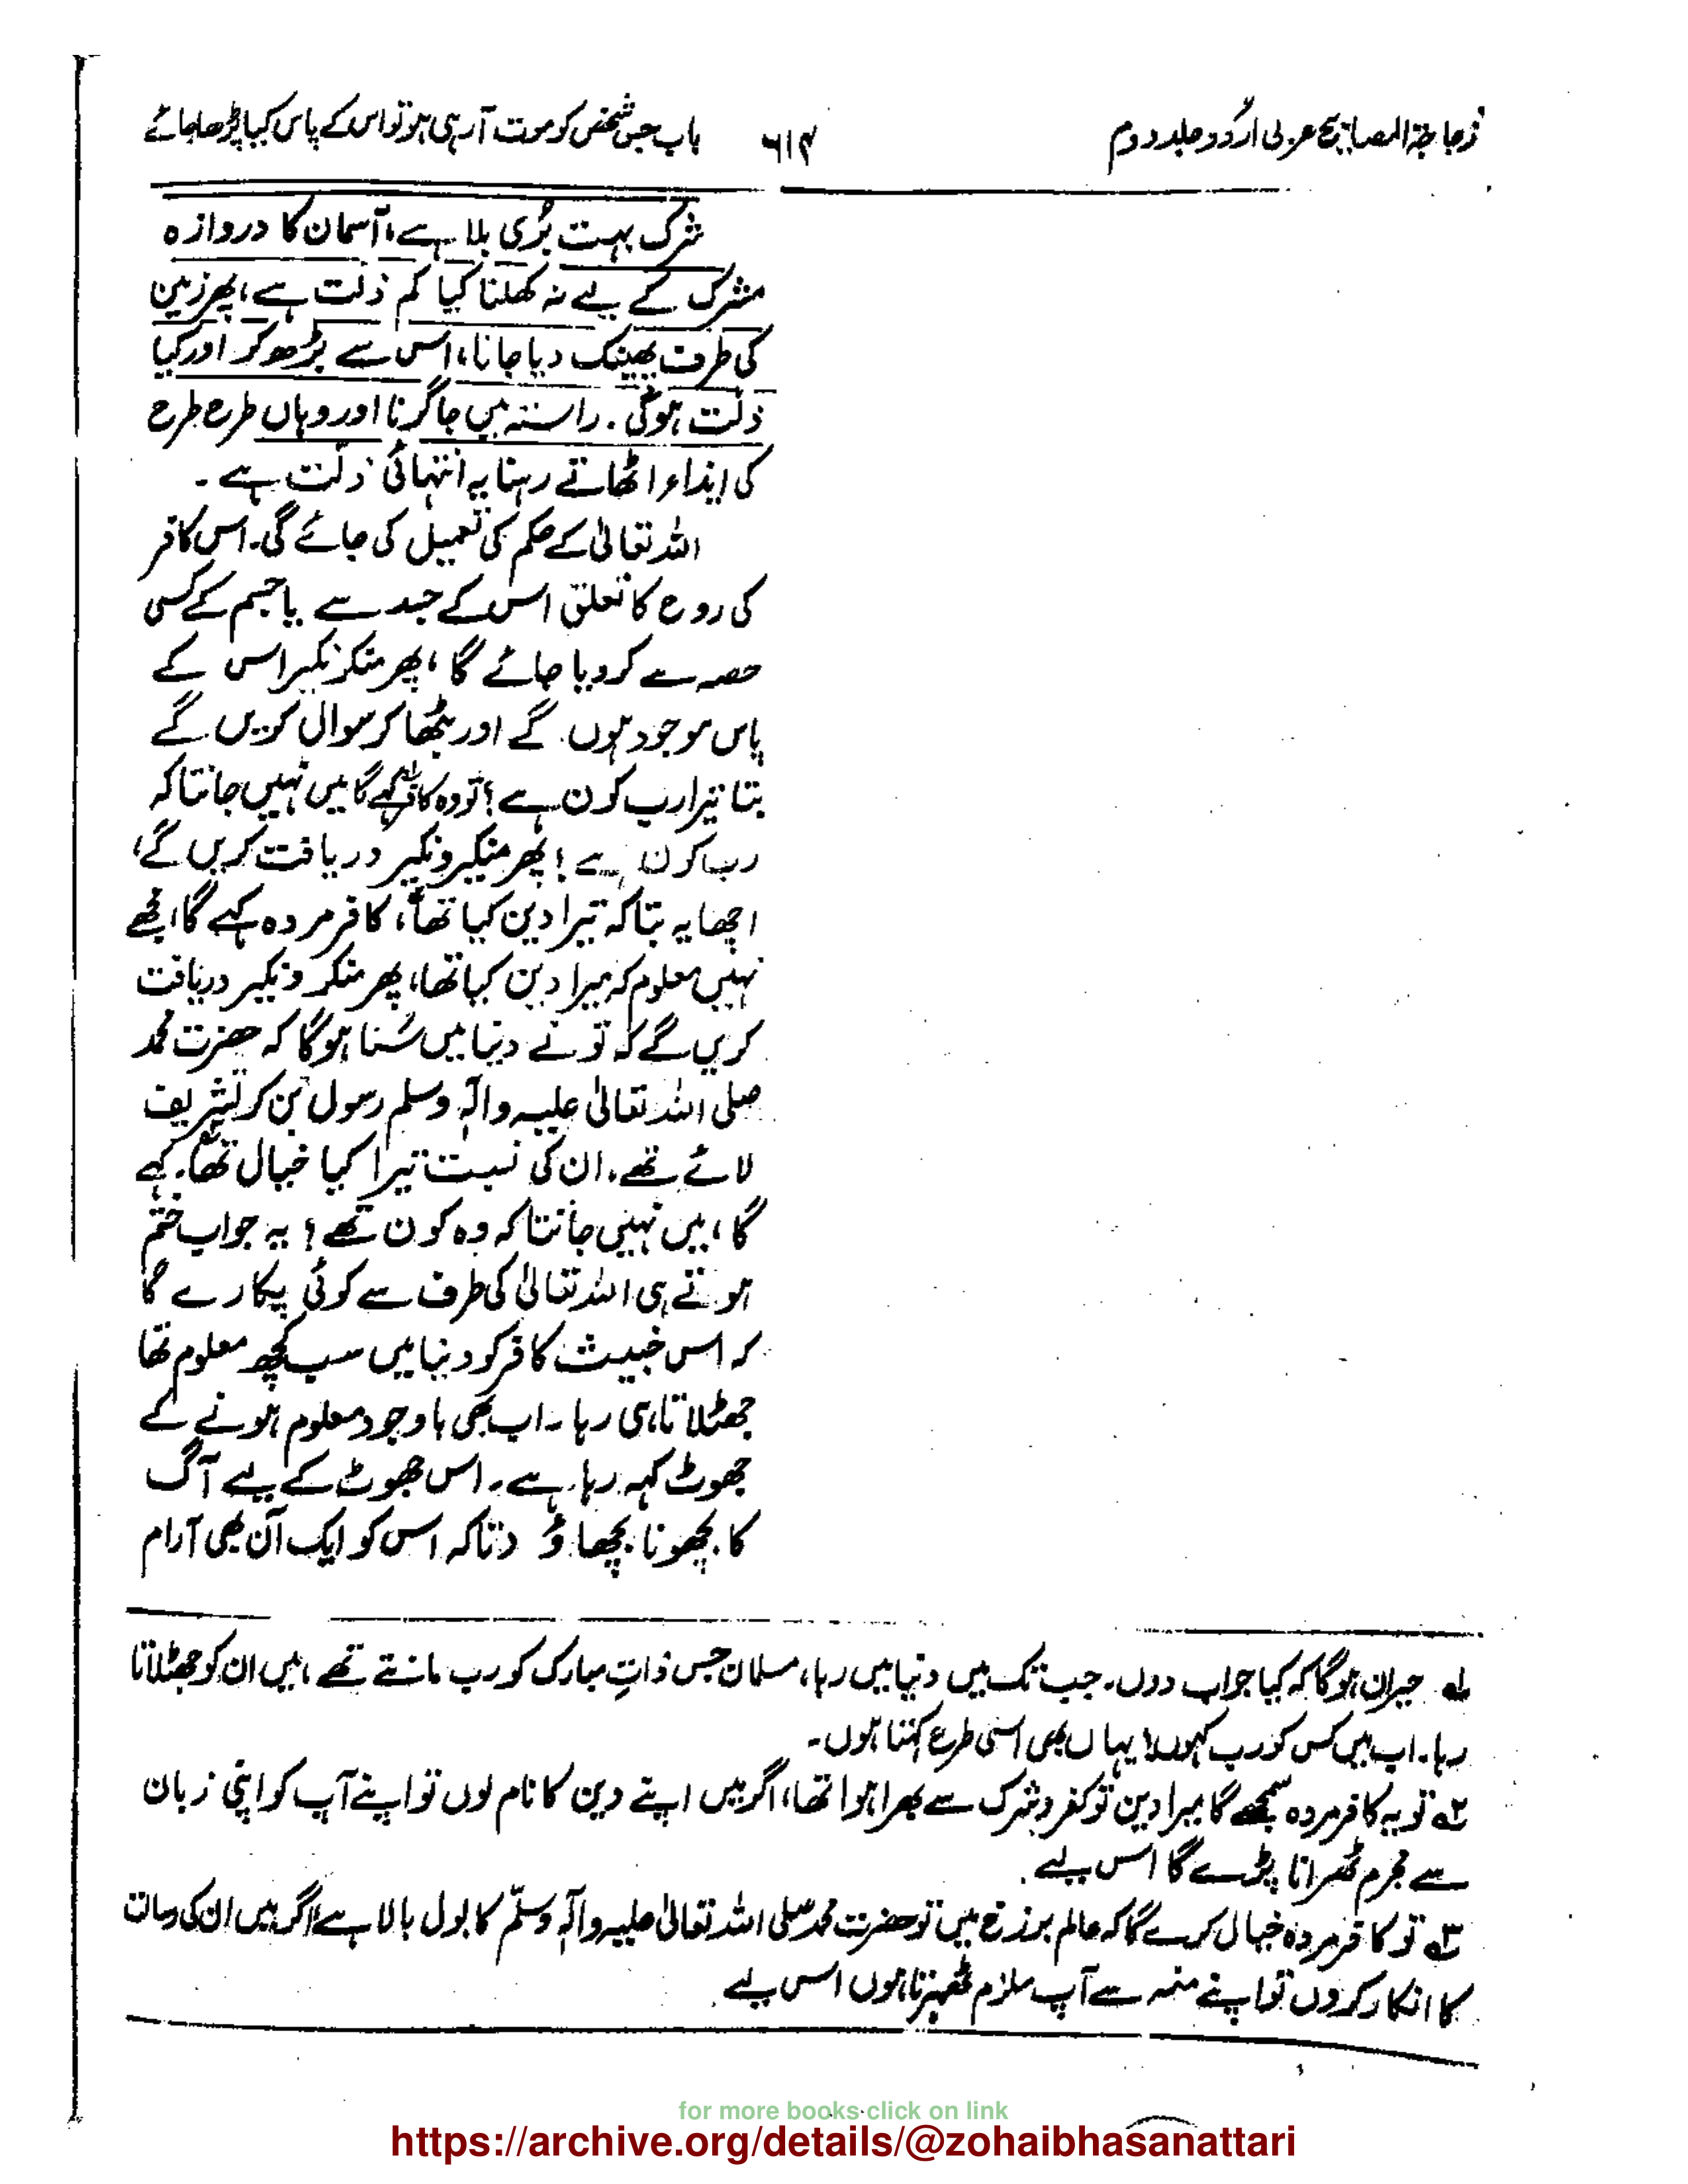 زجاجۃ المصابیح عربی اردو جلد دوم
۶۱۴
باب جس شخص کو موت آرہی ہو تو اس کے پاس کیا پڑھا جائے
شرک بہت بُری بلا ہے، آسمان کا دروازہ
مشرک کے لیے نہ کھلنا کیا کم ذلت ہے، پھر زمین
کی طرف پھینک دیا جانا، اس سے بڑھ کر اور کیا
ذلت ہوگی۔ راستہ میں جا گرنا اور وہاں طرح طرح
کی ایذاء اٹھاتے رہنا یہ انتہائی ذلت ہے۔
اللہ تعالیٰ کے حکم کی تعمیل کی جائے گی۔ اس کافر
کی روح کا تعلق اس کے جسد سے یا جسم کے کسی
حصہ سے کر دیا جائے گا، پھر منکر نکیر اس کے
پاس موجود ہوں گے اور بٹھا کر سوال کریں گے
بتا تیرا رب کون ہے؟ تو وہ کافر کہے گا میں نہیں جانتا کہ
رب کون ہے؟ پھر منکر و نکیر دریافت کریں گے،
اچھا یہ بتا کہ تیرا دین کیا تھا، کافر مردہ کہے گا، مجھے
نہیں معلوم کہ میرا دین کیا تھا، پھر منکر و نکیر دریافت
کریں گے کہ تو نے دنیا میں سُنا ہوگا کہ حضرت محمد
صلی اللہ تعالیٰ علیہ وآلہٖ وسلم رسول بن کر تشریف
لائے تھے، ان کی نسبت تیرا کیا خیال تھا، کہے
گا، میں نہیں جانتا کہ وہ کون تھے؟ یہ جواب ختم
ہوتے ہی اللہ تعالیٰ کی طرف سے کوئی پکارے گا
کہ اس خبیث کافر کو دنیا میں سب کچھ معلوم تھا
جھٹلاتا ہی رہا۔ اب بھی باوجود معلوم ہونے کے
جھوٹ کہہ رہا ہے۔ اس جھوٹ کے لیے آگ
کا بچھونا بچھاؤ تاکہ اس کو ایک آن بھی آرام
۱؎ حیران ہوگا کہ کیا جواب دوں۔ جب تک میں دنیا میں رہا، مسلمان جس ذاتِ مبارک کو رب مانتے تھے، میں ان کو جھٹلاتا
رہا۔ اب میں کس کو رب کہوں، یہاں بھی اسی طرح کہتا ہوں۔
۲؎ تو یہ کافر مردہ سمجھے گا میرا دین تو کفر و شرک سے بھرا ہوا تھا، اگر میں اپنے دین کا نام لوں تو اپنے آپ کو اپنی زبان
سے مجرم ٹھہرانا پڑے گا اس لیے
۳؎ تو کافر مردہ خیال کرے گا کہ عالم برزخ میں تو حضرت محمد صلی اللہ تعالیٰ علیہ وآلہٖ وسلّم کا بول بالا ہے اگر میں ان کی رسالت
کا انکار کروں تو اپنے منہ سے آپ ملزم ٹھہرتا ہوں اس لیے
for more books click on link
https://archive.org/details/@zohaibhasanattari